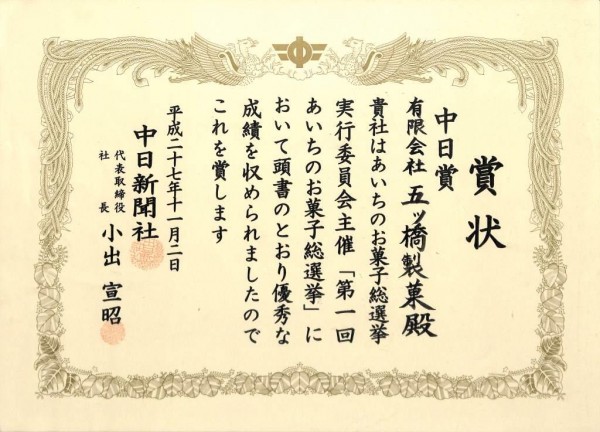 賞状
中日賞
有限会社 五ッ橋製菓殿
貴社はあいちのお菓子総選挙
実行委員会主催「第一回
あいちのお菓子総選挙」に
おいて頭書のとおり優秀な
成績を収められましたので
これを賞します
平成二十七年十一月二日
中日新聞社
代表取締役
社長
小出宣昭